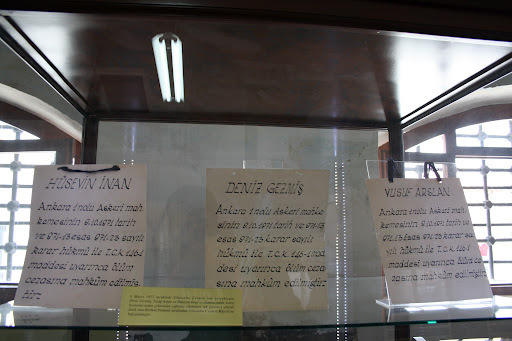 HÜSEYİN İNAN
Ankara 1 nolu Askeri mah
kemesinin 9.10.1971 tarih
ve 971-13 esas 971-23 sayılı
karar hükmü ile T.C.K. 146-1
maddesi uyarınca ölüm
cezasına mahküm edilmiş
tir
DENİZ GEZMİŞ
Ankara 1 nolu Askeri mahke
sinin 9.10.1971 tarih ve 971-13
esas 971-23 karar sayılı
hükmü ile T.C.K. 146-1 mad
desi uyarınca ölüm ceza
sına mahküm edilmiştir
YUSUF ARSLAN
Ankara 1 nolu Askeri mah
kemesinin 9.10.1971 tarih ve
971.13 esas 971.23 karar sayılı
hükmü ile T.C.K. 146-1
maddesi uyarınca ölüm ce
zasına mahküm edilmiştir